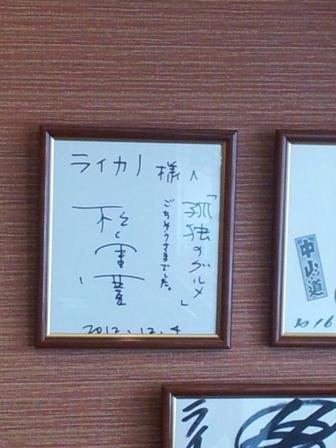 ライカノ 様へ
「孤独のグルメ」
ごちそうさまでした。
松重豊
2012.12.4
中山道
ライ